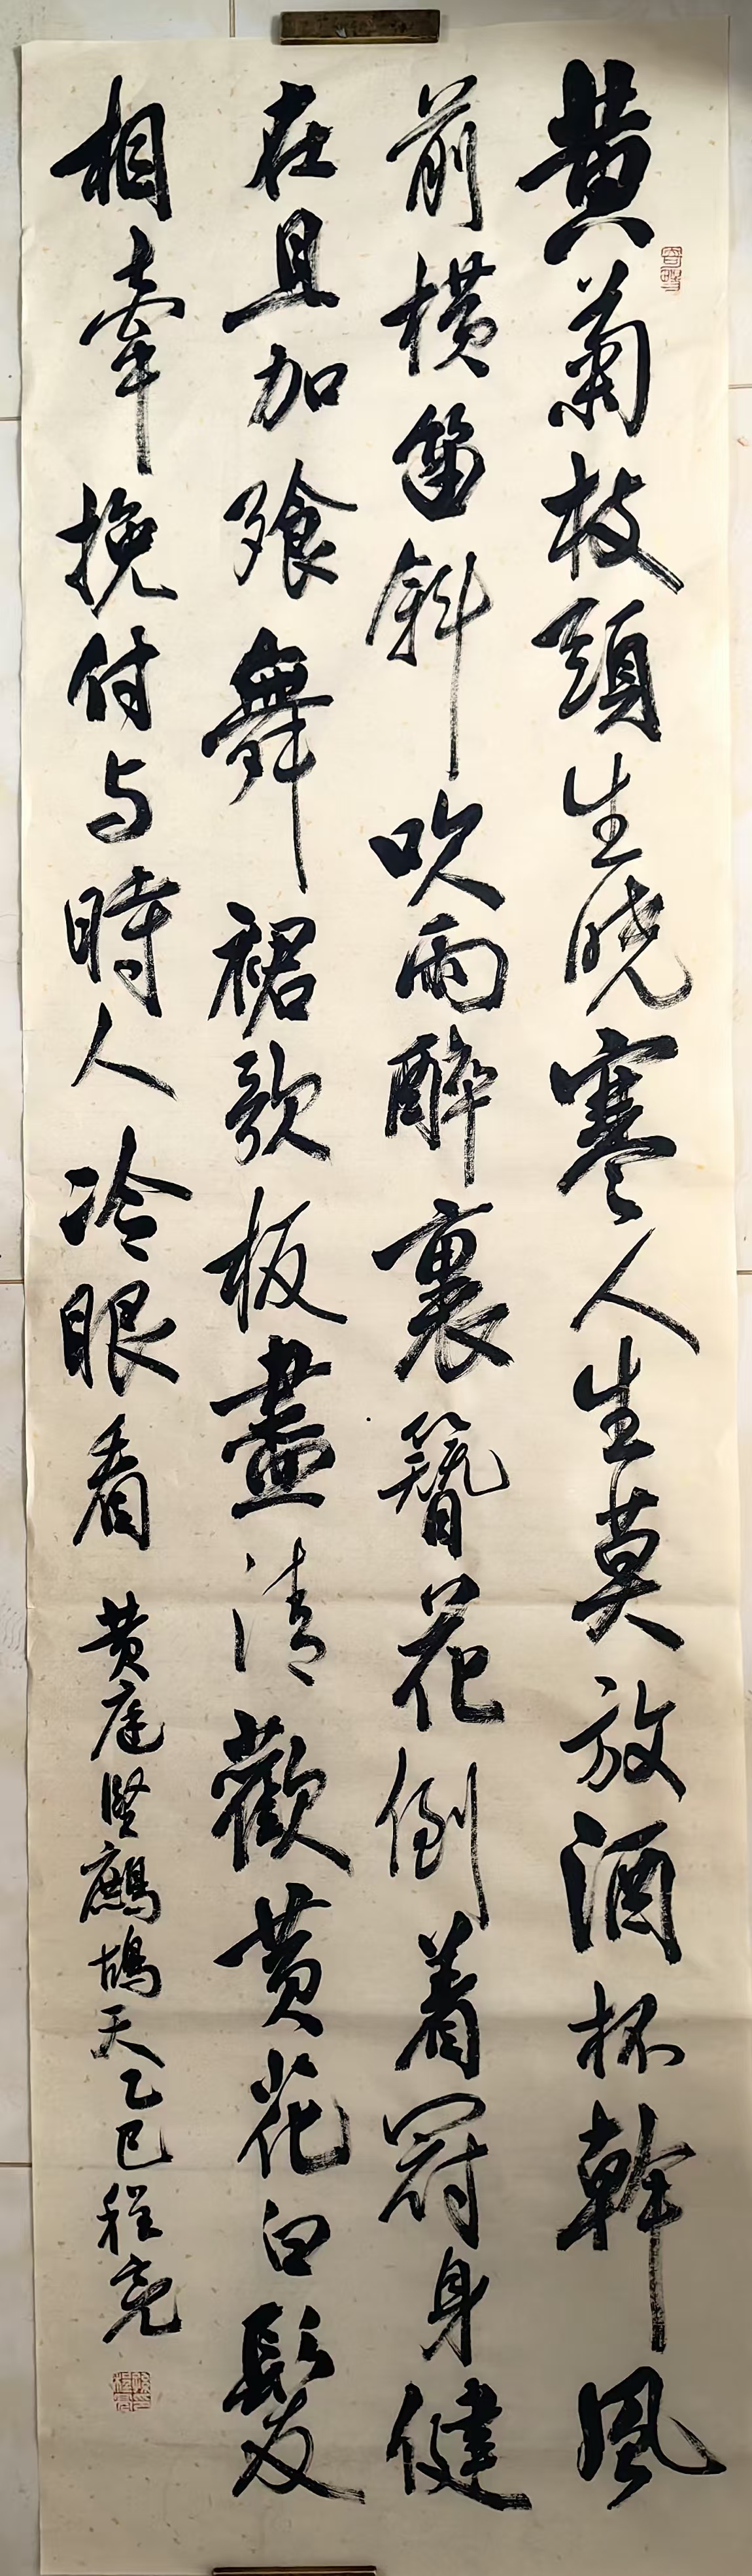 黄菊枝頭生晓寒人生莫放酒杯幹風
前横笛斜吹雨醉裏簪花倒着冠身健
在且加飱舞裙歌板盡清歡黄花白髮
相牽挽付与時人冷眼看
黄庭堅鷓鴣天乙巳程亮